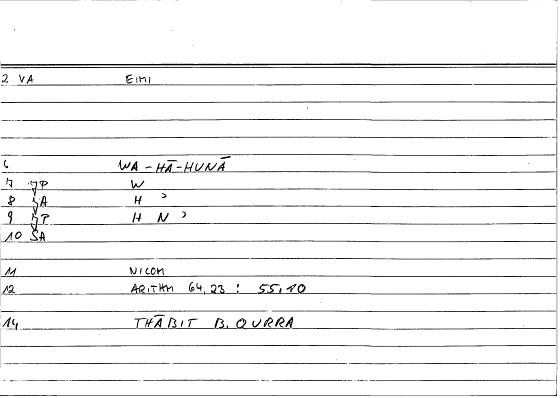 2 VA EIMI
6 WA-HĀ-HUNĀ
7 W
8 H ʾ
9 H N ʾ
10 SA
11 NICOM
12 ARITHM 64,23 : 55,10
14 THĀBIT B. QURRA